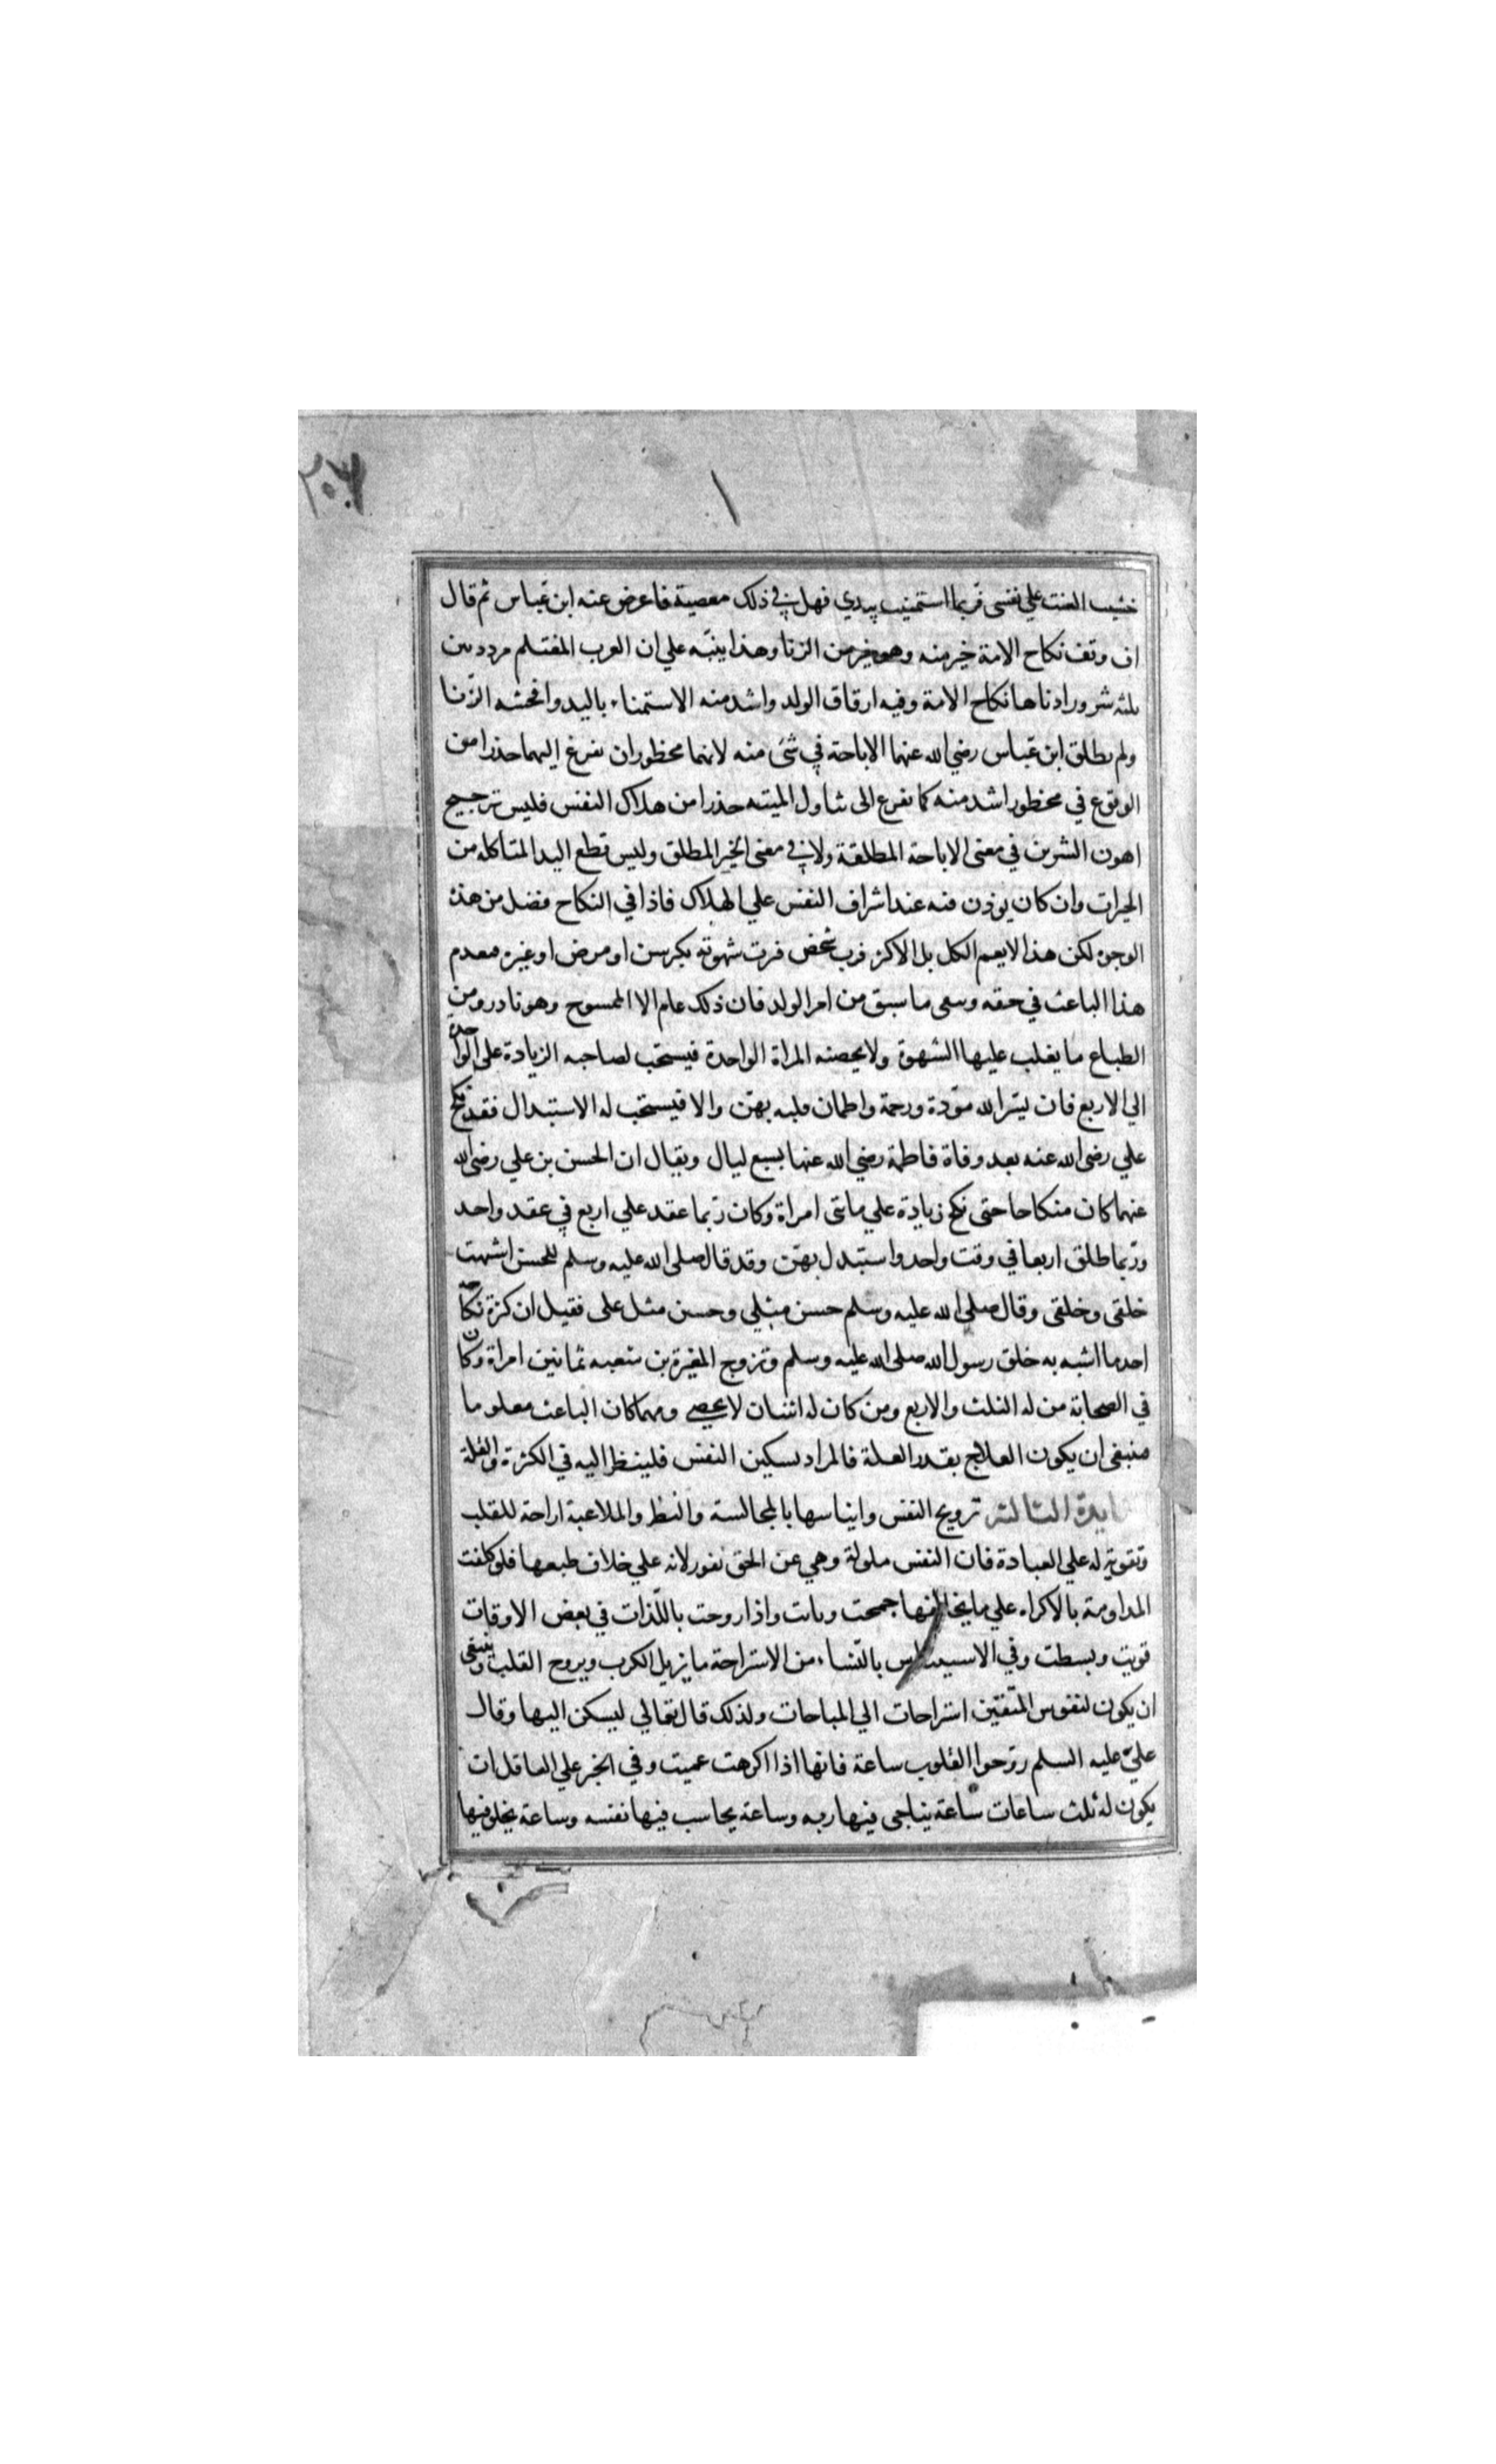 ٢٠٧
خشيت العنت علي نفسي فربما استمنيت بيدي فهل في ذلك معصية فاعرض عنه ابن عباس ثم قال
اف وتف نكاح الامة خير منه وهو خير من الزنا وهذا ينبّه علي ان العرب المغتلم مردد بين
ثلثه شرور ادناها نكاح الامة وفيه ارقاق الولد واشد منه الاستمناء باليد وافحشه الزّنا
ولم يطلق ابن عباس رضي الله عنهما الاباحة في شئ منه لانهما محظوران يفزع اليهما حذرا من
الوقوع في محظور اشد منه كما يفزع الى تناول الميته حذرا من هلاك النفس فليس ترجيح
اهون الشرين في معنى الاباحة المطلقة ولا في معنى الخير المطلق وليس قطع اليد المتاكله من
الخيرات وان كان يوذن فيه عند اشراف النفس علي الهلاك فاذا في النكاح فضل من هذا
الوجه لكن هذا لا يعم الكل بل الاكثر فرب شخص فترت شهوته بكبر سن او مرض او غيره فعدم
هذا الباعث في حقه وبقى ما سبق من امر الولد فان ذلك عام الا الممسوح وهو نادر ومن
الطباع ما يغلب عليها الشهوة ولا يحصنه المراة الواحدة فيستحب لصاحبه الزيادة على الواحدة
الي الاربع فان يسّر الله مودّة ورحمة واطمان قلبه بهنّ والا فيستحب له الاستبدال فقد نكح
علي رضى الله عنه بعد وفاة فاطمة رضي الله عنها بسبع ليال ويقال ان الحسن بن علي رضى الله
عنهما كان منكاحا حتى نكح زيادة علي مائتى امراة وكان ربّما عقد علي اربع في عقد واحد
وربّما طلق اربعا في وقت واحد واستبدل بهنّ وقد قال صلى الله عليه وسلم للحسن اشبهت
خلقى وخلقى وقال صلى الله عليه وسلم حسن منى وحسين مثل على فقيل ان كثرة نكاحه
احد ما اشبه به خلق رسول الله صلى الله عليه وسلم وتزوج المغيرة بن شعبه ثمانين امراة وكان
في الصحابة من له الثلث والاربع ومن كان له اثنتان لا يحصى ومهما كان الباعث معلوما
فينبغى ان يكون العلاج بقدر العلة فالمراد تسكين النفس فلينظر اليه في الكثرة والقلة
الفايدة الثالثة ترويح النفس وايناسها بالمجالسة والنظر والملاعبة اراحة للقلب
وتقوية له علي العبادة فان النفس ملولة وهي عن الحق نفور لانه علي خلاف طبعها فلو كلفت
المداومة بالاكراه علي ما يخالفها جمحت وبابت واذا روحت باللّذات في بعض الاوقات
قويت وبسطت وفي الاستيناس بالنّساء من الاستراحة ما يزيل الكرب ويروح القلب وينبغى
ان يكون لنفوس المتّقين استراحات الي المباحات ولذلك قال تعالي ليسكن اليها وقال
عليّ عليه السلم روّحوا القلوب ساعة فانها اذا اكرهت عميت وفي الخبر علي العاقل ان
يكون له ثلث ساعات ساعة يناجى فيها ربه وساعة يحاسب فيها نفسه وساعة يخلو فيها